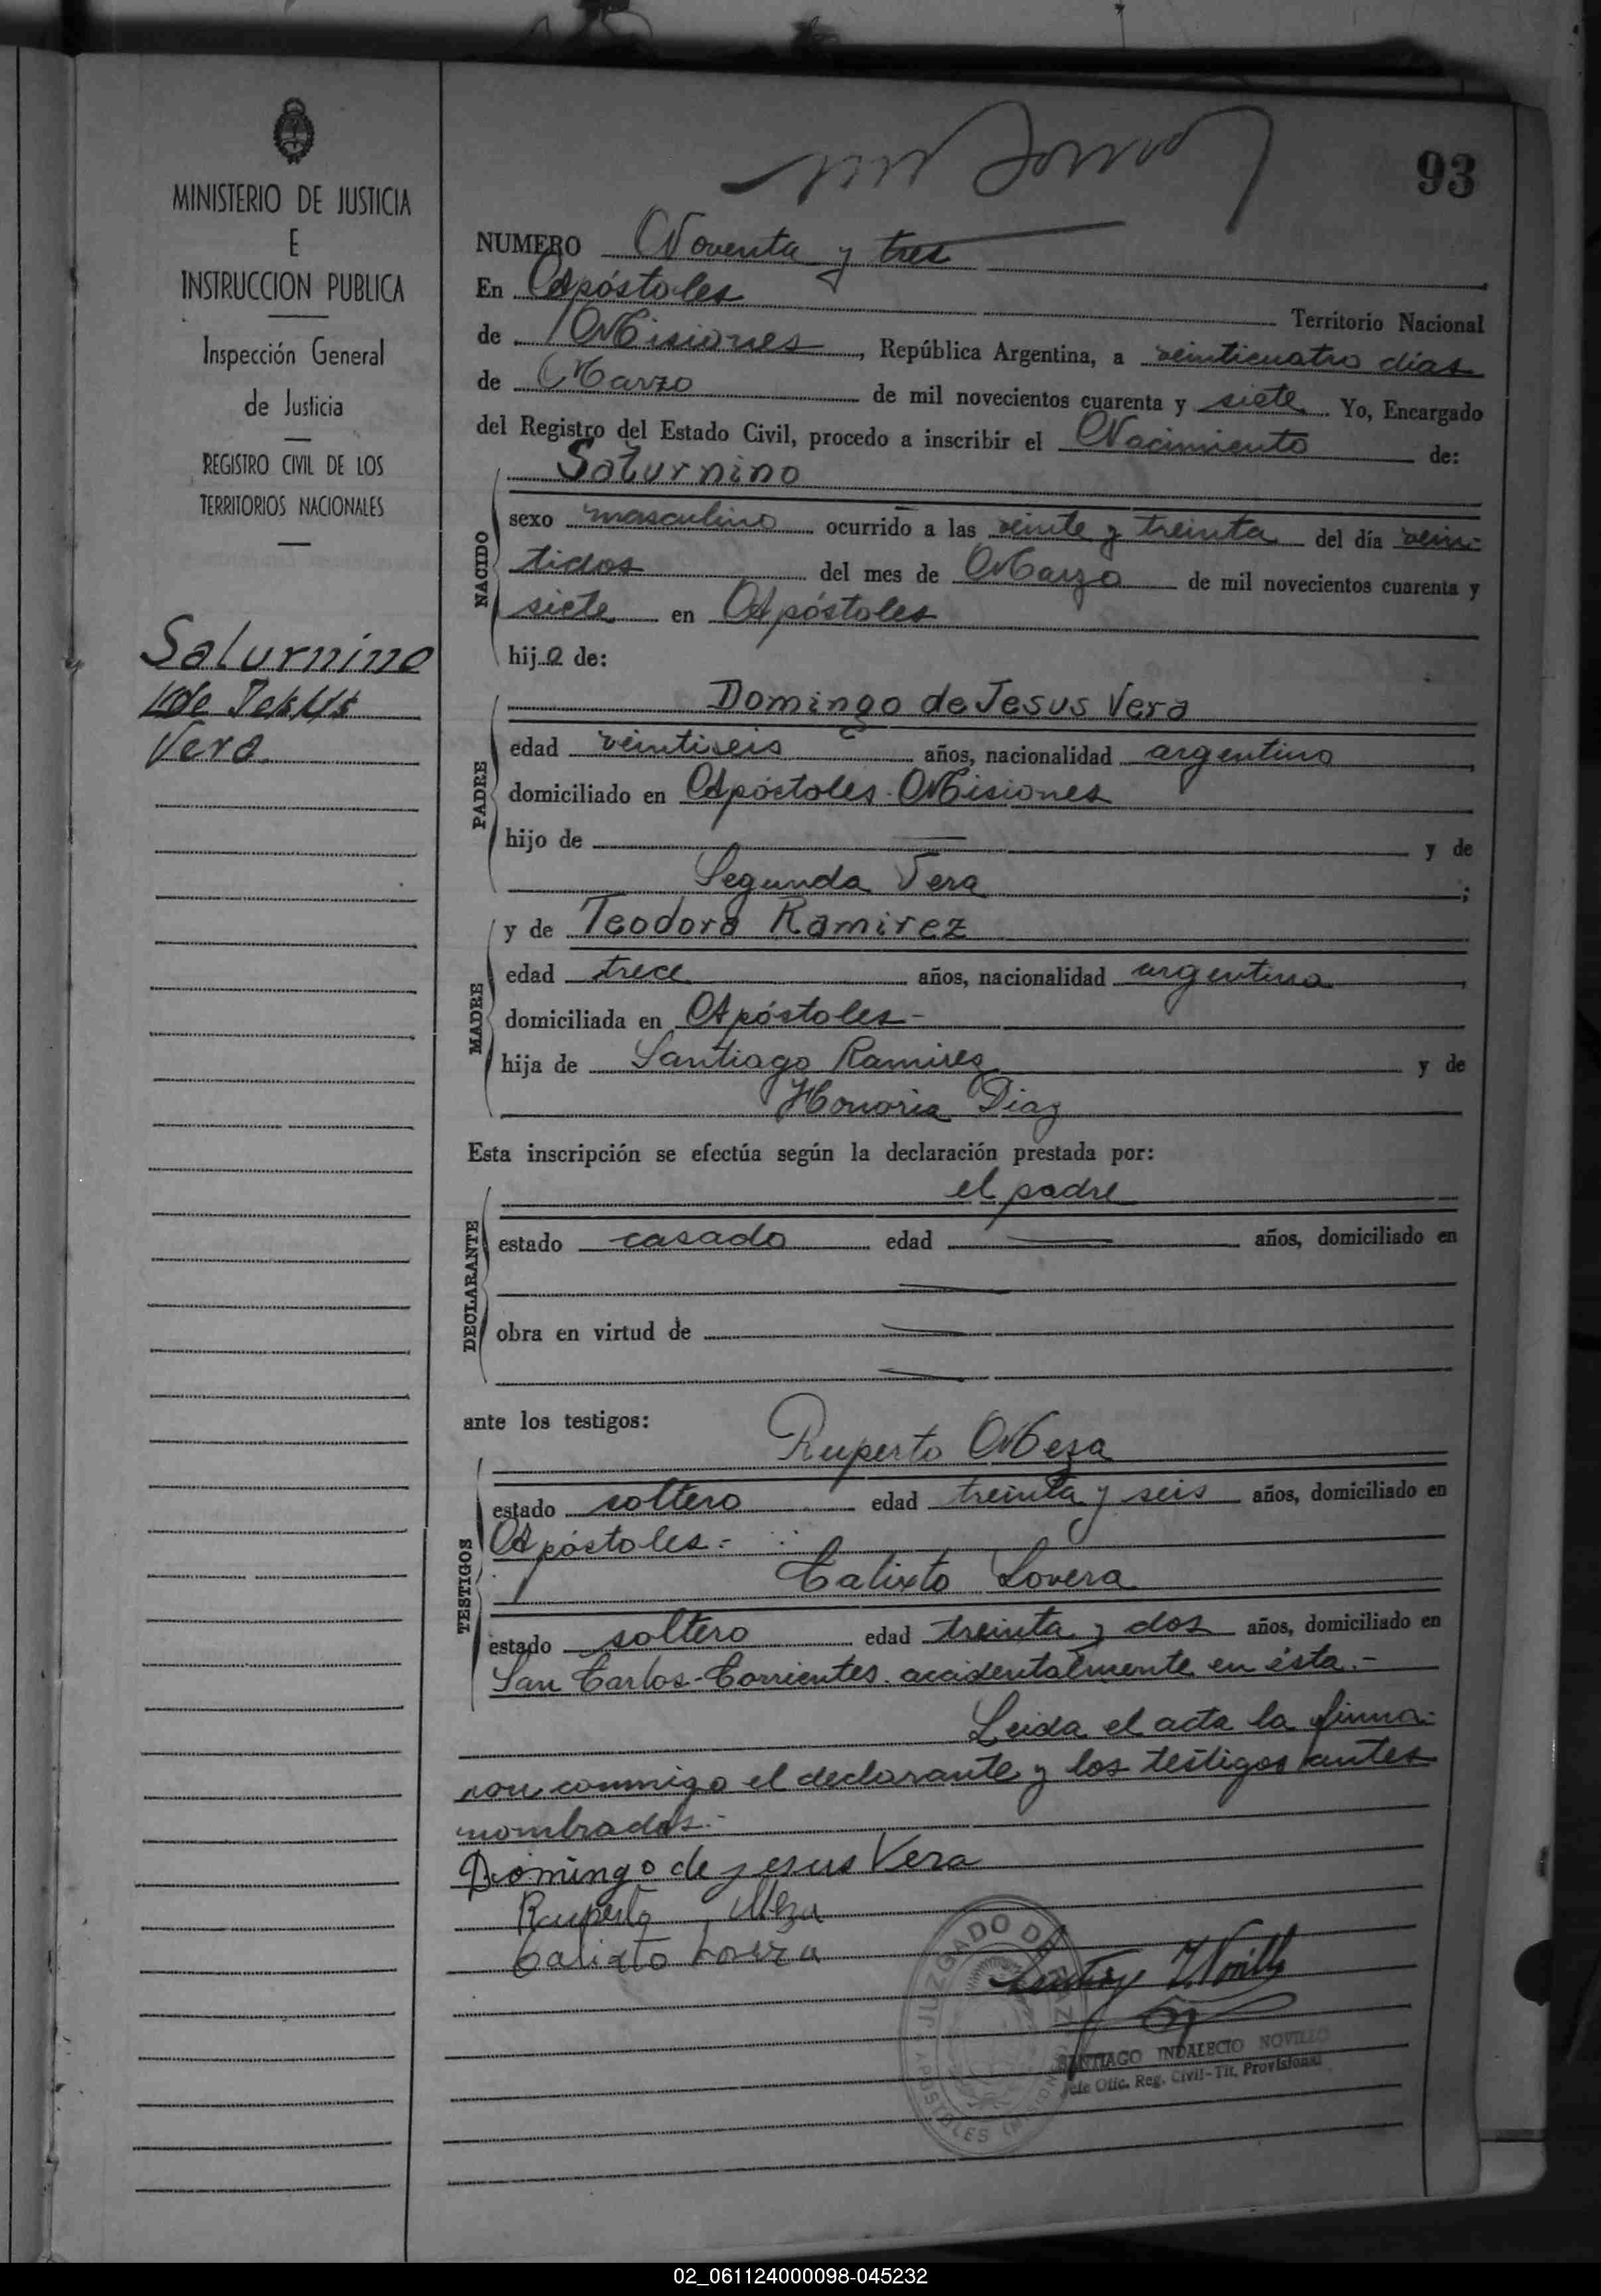 93
MINISTERIO DE JUSTICIA
E
INSTRUCCION PUBLICA
Inspección General
de Justicia
REGISTRO CIVIL DE LOS
TERRITORIOS NACIONALES
Saturnino
de Jesus
Vera.
NUMERO Noventa y tres
En Apóstoles Territorio Nacional
de Misiones, República Argentina, a veinticuatro dias
de Marzo de mil novecientos cuarenta y siete Yo, Encargado
del Registro del Estado Civil, procedo a inscribir el Nacimiento de:
Saturnino
NACIDO
sexo masculino ocurrido a las veinte y treinta del día vein-
tidos del mes de Marzo de mil novecientos cuarenta y
siete en Apóstoles
hijo de:
PADRE
Domingo de Jesus Vera
edad veintiseis años, nacionalidad argentino
domiciliado en Apóstoles - Misiones
hijo de — y de
Segunda Vera ;
MADRE
y de Teodora Ramirez
edad trece años, nacionalidad argentina
domiciliada en Apóstoles-
hija de Santiago Ramirez y de
Honoria Diaz
Esta inscripción se efectúa según la declaración prestada por:
DECLARANTE
el padre
estado casado edad — años, domiciliado en
obra en virtud de —
ante los testigos:
TESTIGOS
Ruperto Meza
estado soltero edad treinta y seis años, domiciliado en
Apóstoles.-
Calixto Lovera
estado soltero edad treinta y dos años, domiciliado en
San Carlos-Corrientes. accidentalmente en ésta.-
Leida el acta la firma-
ron conmigo el declarante y los testigos antes
nombrados.-
Domingo de jesus Vera
Ruperto Meza
Calixto Lovera
JUZGADO DE PAZ
APOSTOLES (MISIONES)
SANTIAGO INDALECIO NOVILLO
Jefe Ofic. Reg. Civil-Tit. Provisional
02_061124000098-045232